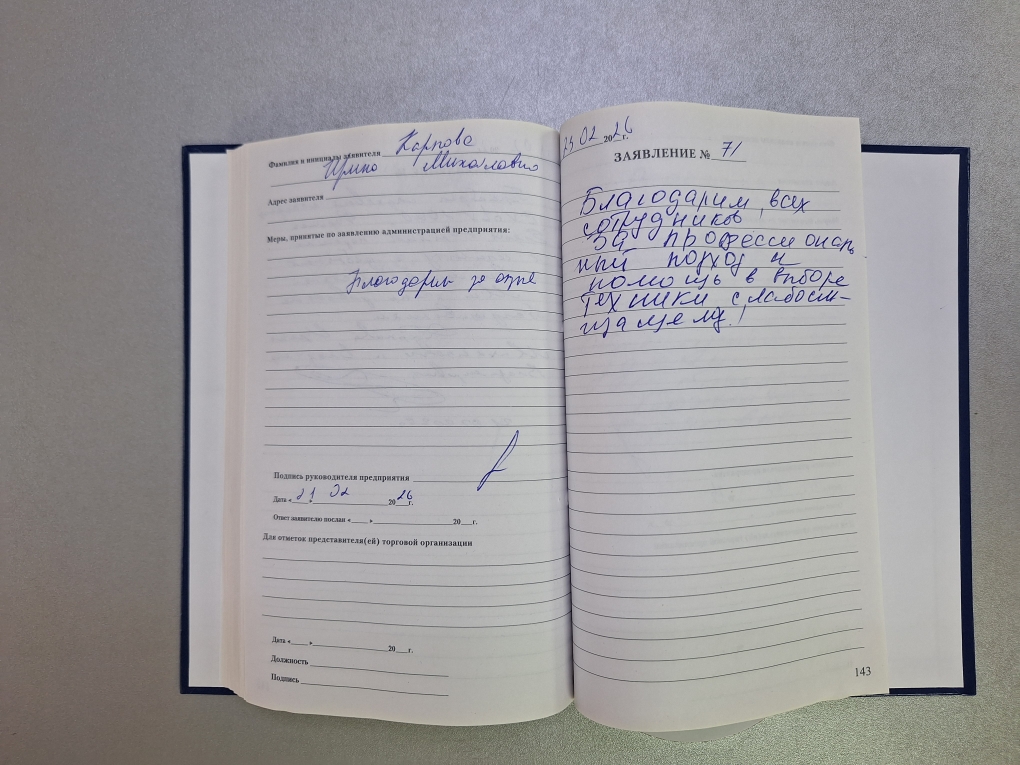 Фамилия и инициалы заявителя Карпова
Ирина Михайловна
Адрес заявителя
Меры, принятые по заявлению администрацией предприятия:
Благодарим за отзыв
Подпись руководителя предприятия
Дата «21» 02 2026г.
Ответ заявителю послан «___» 20__г.
Для отметок представителя(ей) торговой организации
Дата «___» 20__г.
Должность
Подпись
25 02 2026г.
ЗАЯВЛЕНИЕ № 71
Благодарим всех
сотрудников
за профессиональ
ный подход и
помощь в выборе
техники слабосл-
ышащему!
143